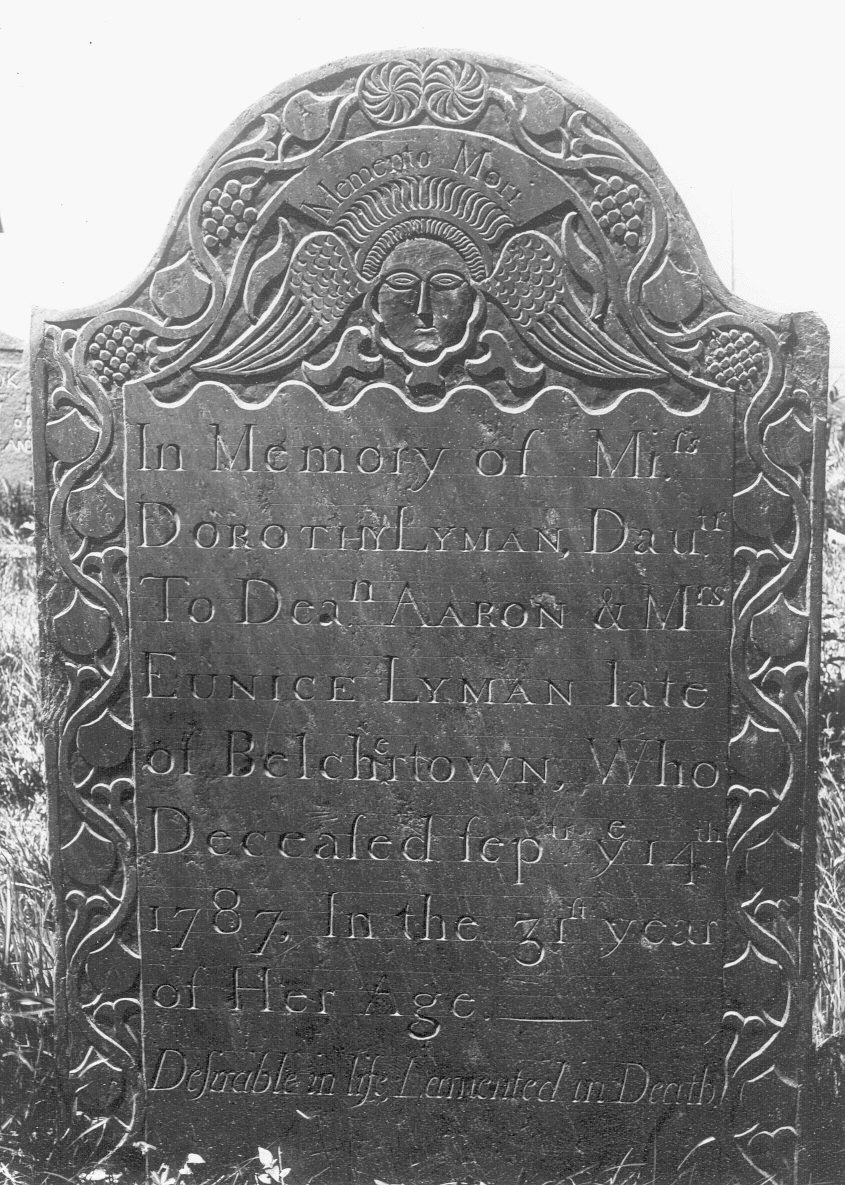 Memento Mori
In Memory of Miſs
DOROTHY LYMAN, Dautr
To Dean. AARON & Mrs
EUNICE LYMAN late
of Belchertown, Who
Deceaſed ſeptr ye 14th
1787, In the 31ſt year
of Her Age.
Deſirable in life, Lamented in Death